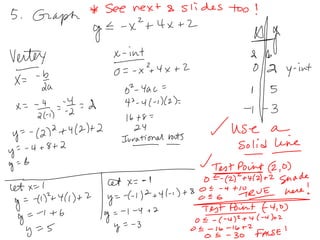 5. Graph * See next 2 slides too!
y ≤ -x² + 4x + 2
Vertex
x = -b/2a
x = -4/2(-1) = -4/-2 = 2
y = -(2)² + 4(2) + 2
y = -4 + 8 + 2
y = 6
x-int
0 = -x² + 4x + 2
b² - 4ac =
4² - 4(-1)(2) =
16 + 8 =
24
Irrational roots
x y
2 6
0 2 y-int
1 5
-1 -3
✓ Use a
Solid Line
Let x = 1
y = -(1)² + 4(1) + 2
y = -1 + 6
y = 5
Let x = -1
y = -(-1)² + 4(-1) + 2
y = -1 - 4 + 2
y = -3
✓ Test Point (2,0)
0 ≤ -(2)² + 4(2) + 2 Shade
0 ≤ -4 + 10 here!
0 ≤ 6 TRUE
Test Point (-4,0)
0 ≤ -(-4)² + 4(-4) + 2
0 ≤ -16 - 16 + 2
0 ≤ -30 FALSE!